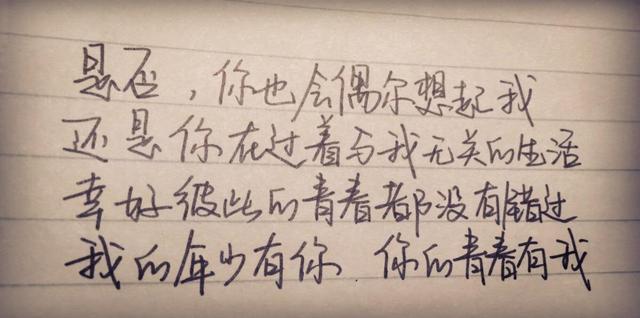 是否，你也会偶尔想起我
还是你在过着与我无关的生活
幸好彼此的青春都没有错过
我的年少有你 你的青春有我